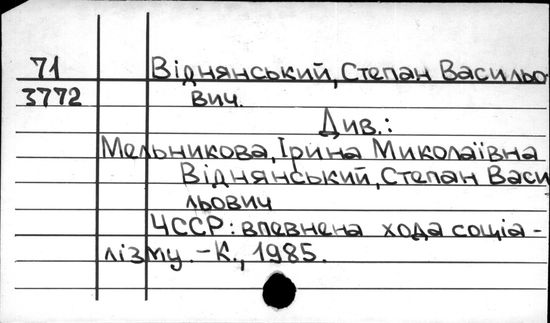 71 Віднянський, Степан Васильо-
3772 вич.
Див.:
Мельникова, Ірина Миколаївна
Віднянський, Степан Васи
льович
ЧССР: впевнена хода соціа-
лізму. - К., 1985.